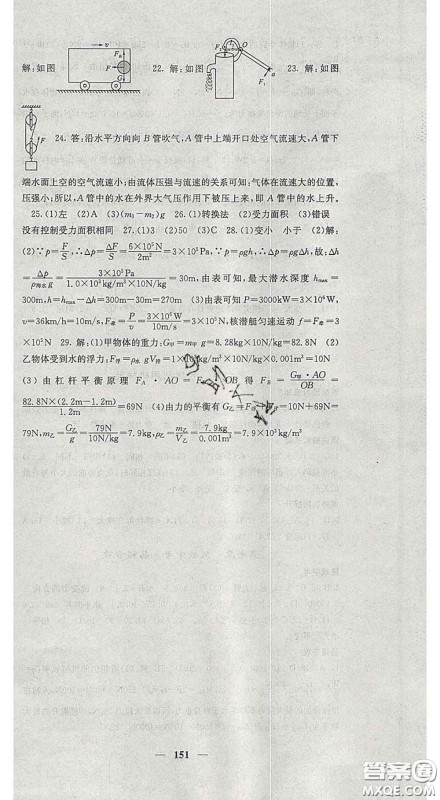 v
F_B
F
G
F_1
O
a
解:如图 22. 解:如图 23. 解:如图
F
24. 答:沿水平方向向 B 管吹气,A 管中上端开口处空气流速大,A 管下
端水面上空的空气流速小;由流体压强与流速的关系可知:气体在流速大的位置,
压强小;所以,A 管中的水在外界大气压作用下被压上来,即 A 管中的水上升。
25.(1)左 (2)A (3)(m₁−m₂)g 26.(1)转换法 (2)受力面积 (3)错误
没有控制受力面积相同 27.(1)3 (2)50 (3)C 28.(1)变小 小于 (2)解:
(2)∵p=F/S,∴Δp=ΔF/S=6×10⁵N/2m²=3×10⁵Pa,∵p=ρgh,∴Δp=ρgΔh,故:Δh
=Δp/ρ海水g=3×10⁵Pa/1.0×10³kg/m³×10N/kg=30m,由表可知,最大潜水深度 hmax=
300m,h=hmax−Δh=300m−30m=270m (3)由表可知 P=3000kW=3×10⁶W,
v=36km/h=10m/s,F=P/v=3×10⁶W/10m/s=3×10⁵N,核潜艇匀速运动,f=F牵=3
×10⁵N 29. 解:(1)甲物体的重力:G甲=m甲g=8.28kg×10N/kg=82.8N (2)
乙物体受到水的浮力:F浮=ρ水gV排=1×10³kg/m³×10N/kg×0.001m³=10N
(3)由杠杆平衡原理 F_A·AO=F_B·OB 得 F_B=G甲·AO/OB=
82.8N×(2.2m−1.2m)/1.2m=69N (4)由力的平衡有 G乙=F_B+F浮=10N+69N=
79N,m乙=G乙/g=79N/10N/kg=7.9kg,ρ乙=m乙/V乙=7.9kg/0.001m³=7.9×10³kg/m³
151
答案圈
MXQE.COM